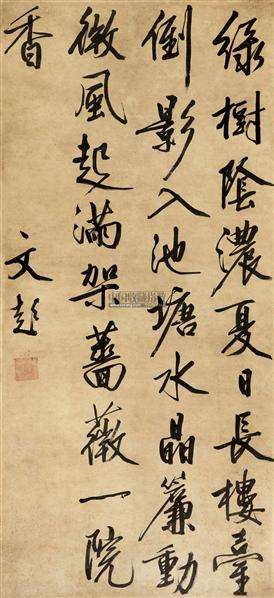 綠樹陰濃夏日長樓臺
倒影入池塘水晶簾動
微風起滿架薔薇一院
香
文彭